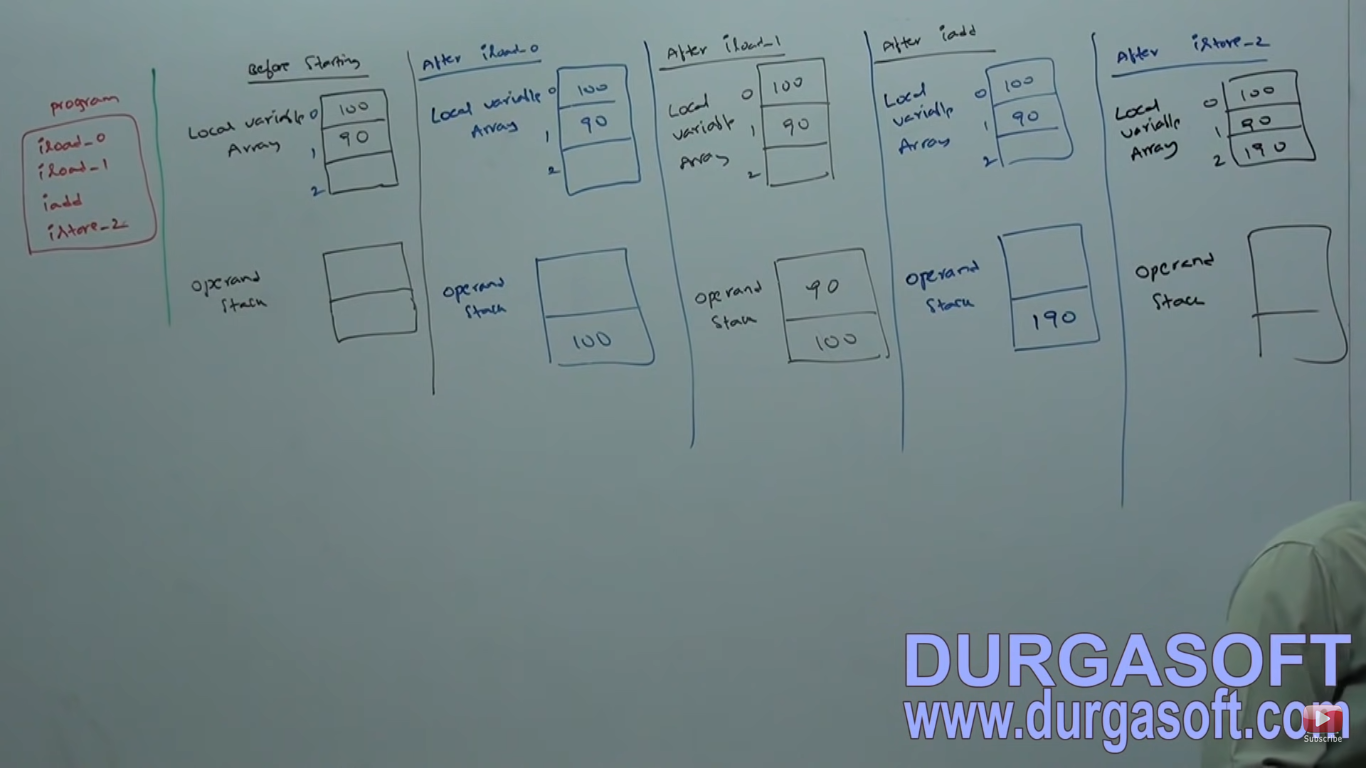 program
iload_0
iload_1
iadd
istore_2
Before Starting
Local variable
Array
0
1
2
100
90
Operand
Stack
After iload_0
Local variable
Array
0
1
2
100
90
Operand
Stack
100
After iload_1
Local
variable
Array
0
1
2
100
90
Operand
Stack
90
100
After iadd
Local
variable
Array
0
1
2
100
90
Operand
Stack
190
After istore_2
Local
variable
Array
0
1
2
100
90
190
Operand
Stack
DURGASOFT
www.durgasoft.com
Subscribe